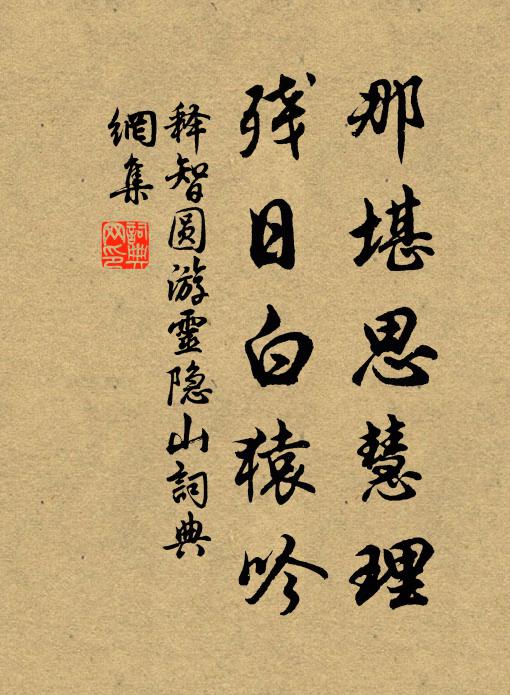 那堪思慧理
残日白猿吟
释智圆游靈隐山詞典
網集
詞典網印